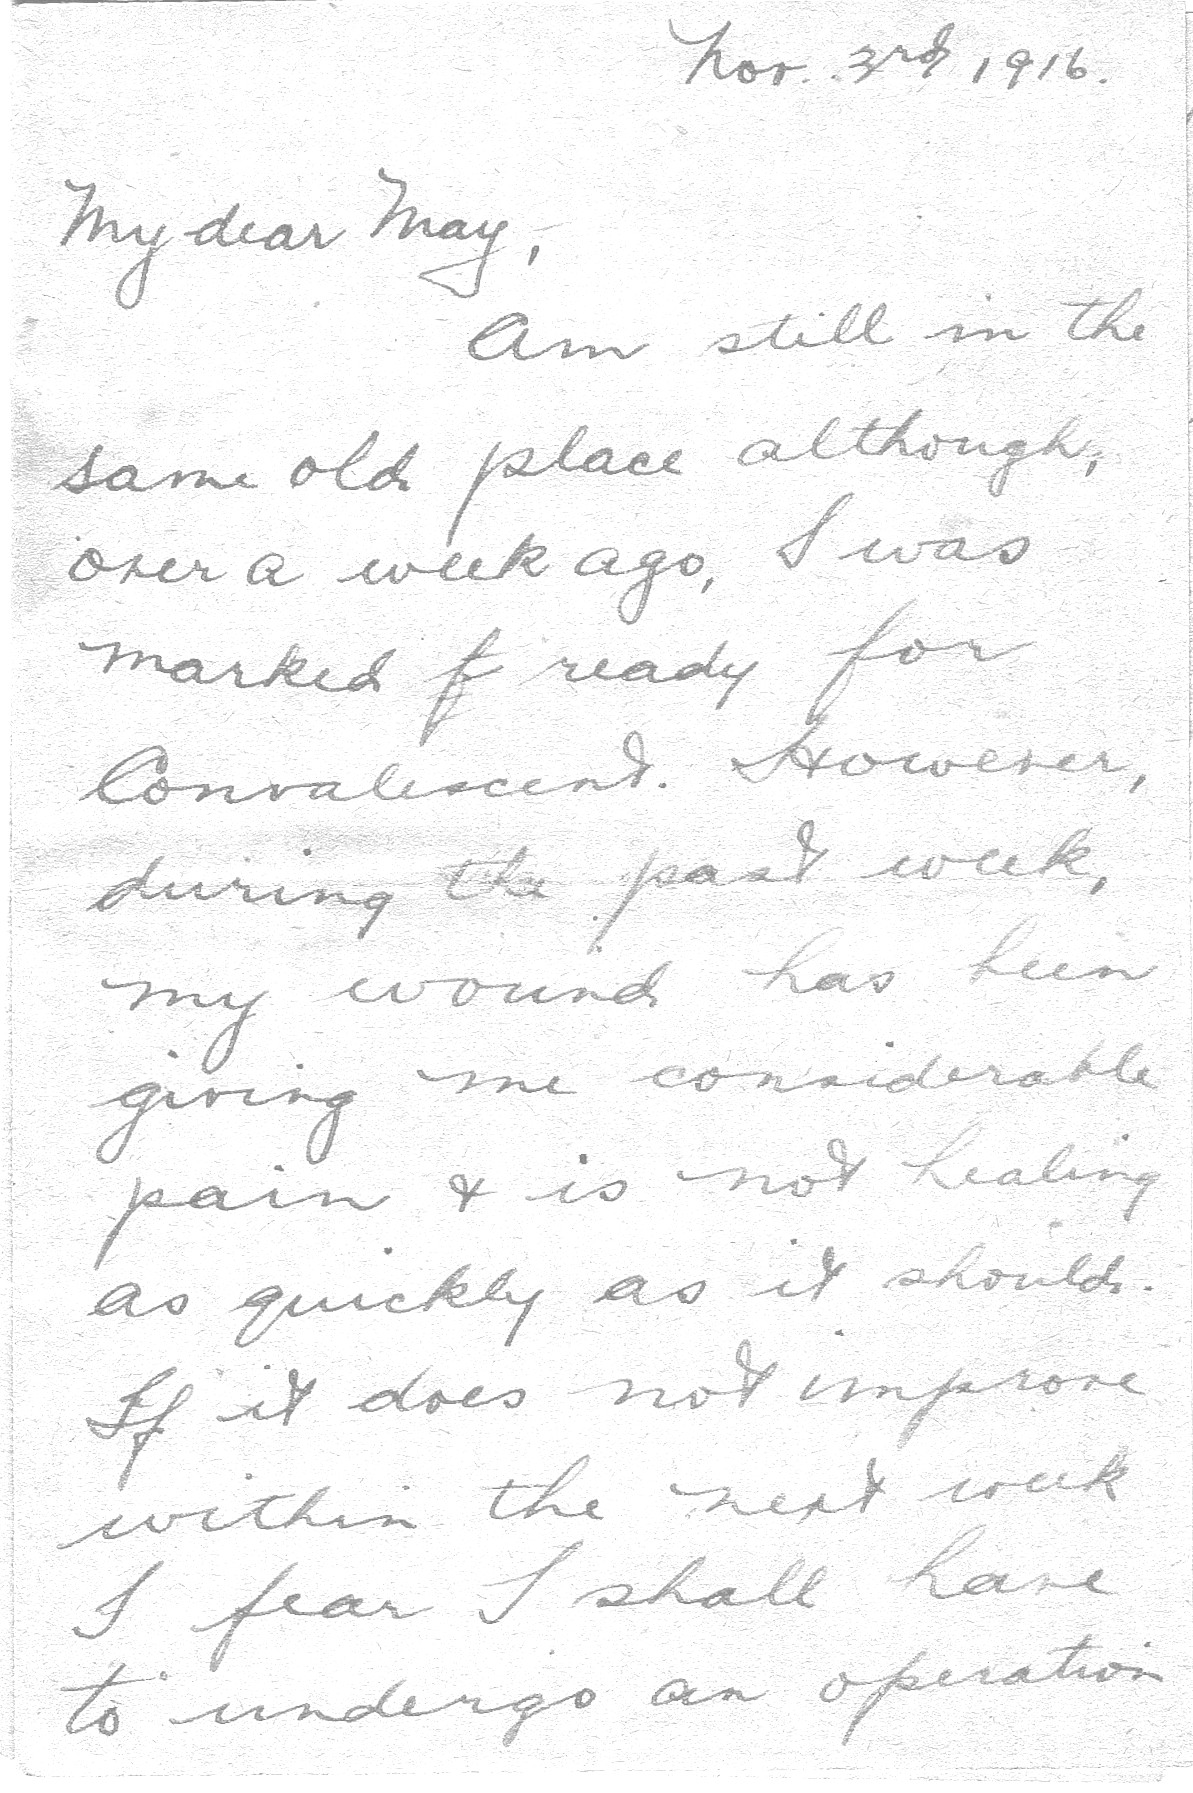 Nov. 3rd, 1916.
My dear May,
Am still in the
same old place although,
over a week ago, I was
marked f ready for
Convalescent. However,
during the past week,
my wound has been
giving me considerable
pain & is not healing
as quickly as it should.
If it does not improve
within the next week
I fear I shall have
to undergo an operation